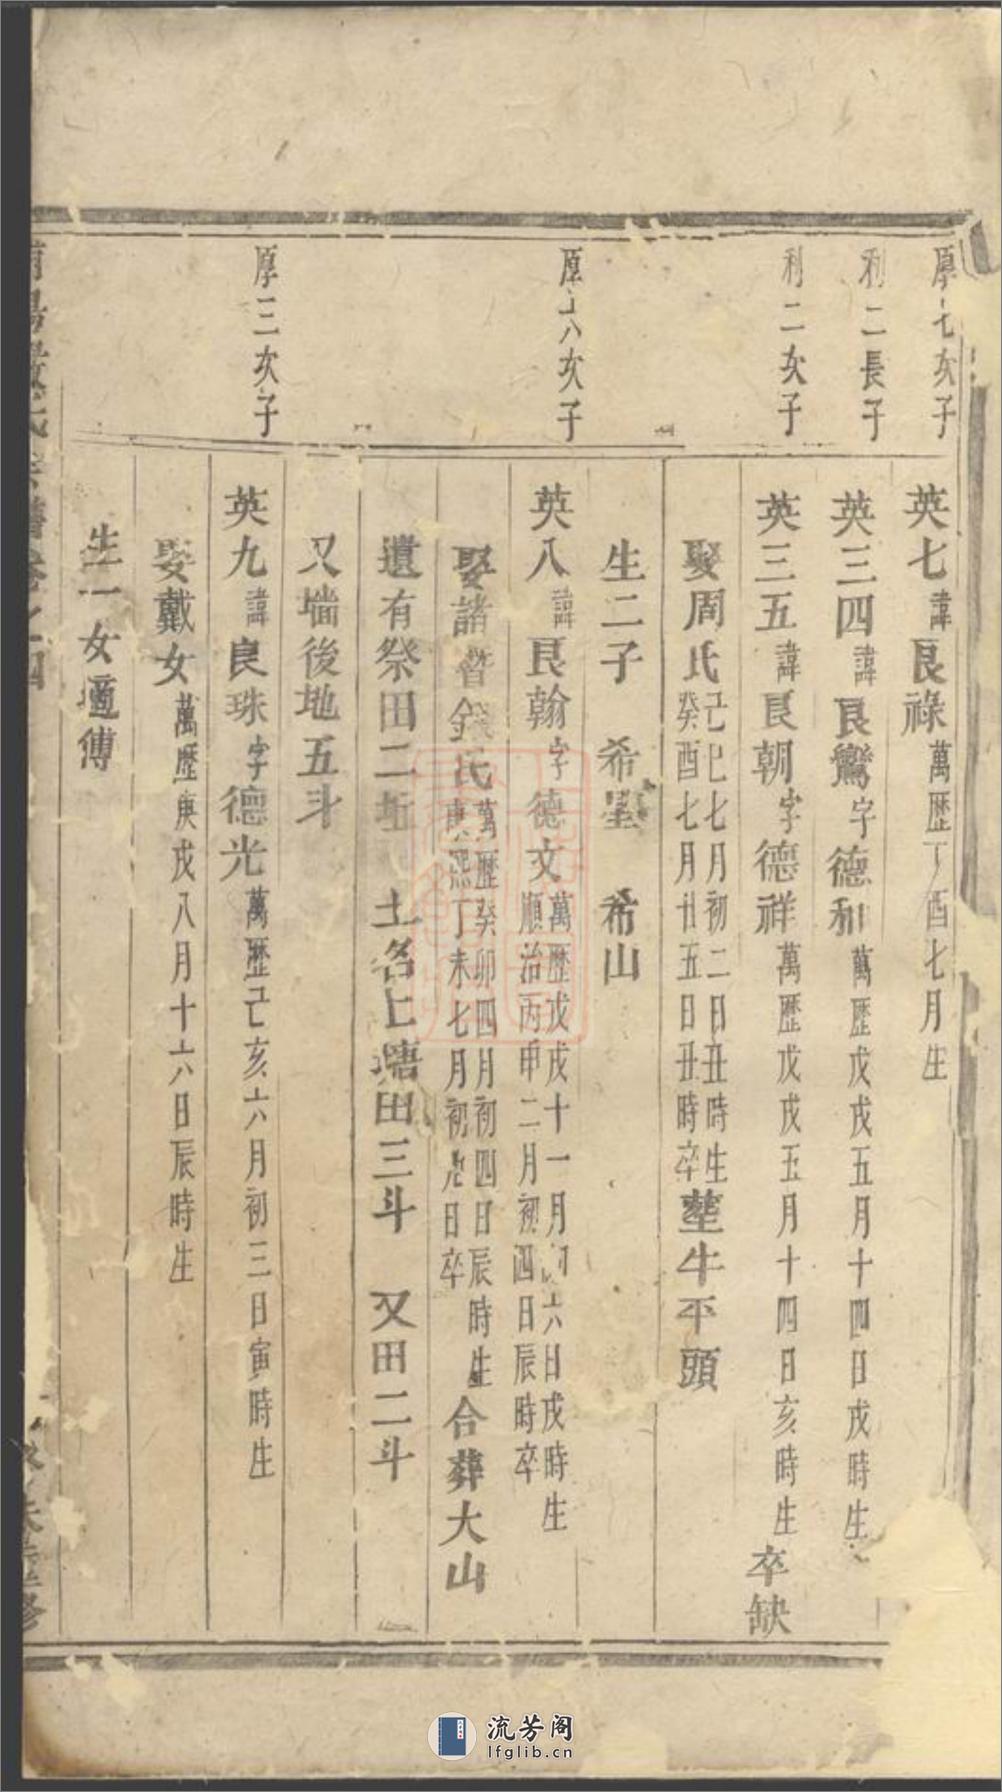 原七次子
英七諱良祿萬歷丁酉七月生
利二長子
英三四諱良鸞字德和萬歷戊戌五月十四日戌時生
利二次子
英三五諱良朝字德祥萬歷戊戌五月十四日亥時生卒缺
娶周氏己巳七月初二日丑時生
癸酉七月廿五日丑時卒塟牛平頭
生二子 希墨 希山
原六次子
英八諱良翰字德文萬歷戊戌十一月初六日戌時生
順治丙申二月初四日辰時卒
娶諸暨錢氏萬歷癸卯四月初四日辰時生
康熙丁未七月初九日卒合葬大山
遺有祭田二坵 土名上塘田三斗 又田二斗
又墻後地五斗
厚三次子
英九諱良珠字德光萬歷己亥六月初三日寅時生
娶戴女萬歷庚戌八月十六日辰時生
生一女適傅
流芳阁
lfglib.cn